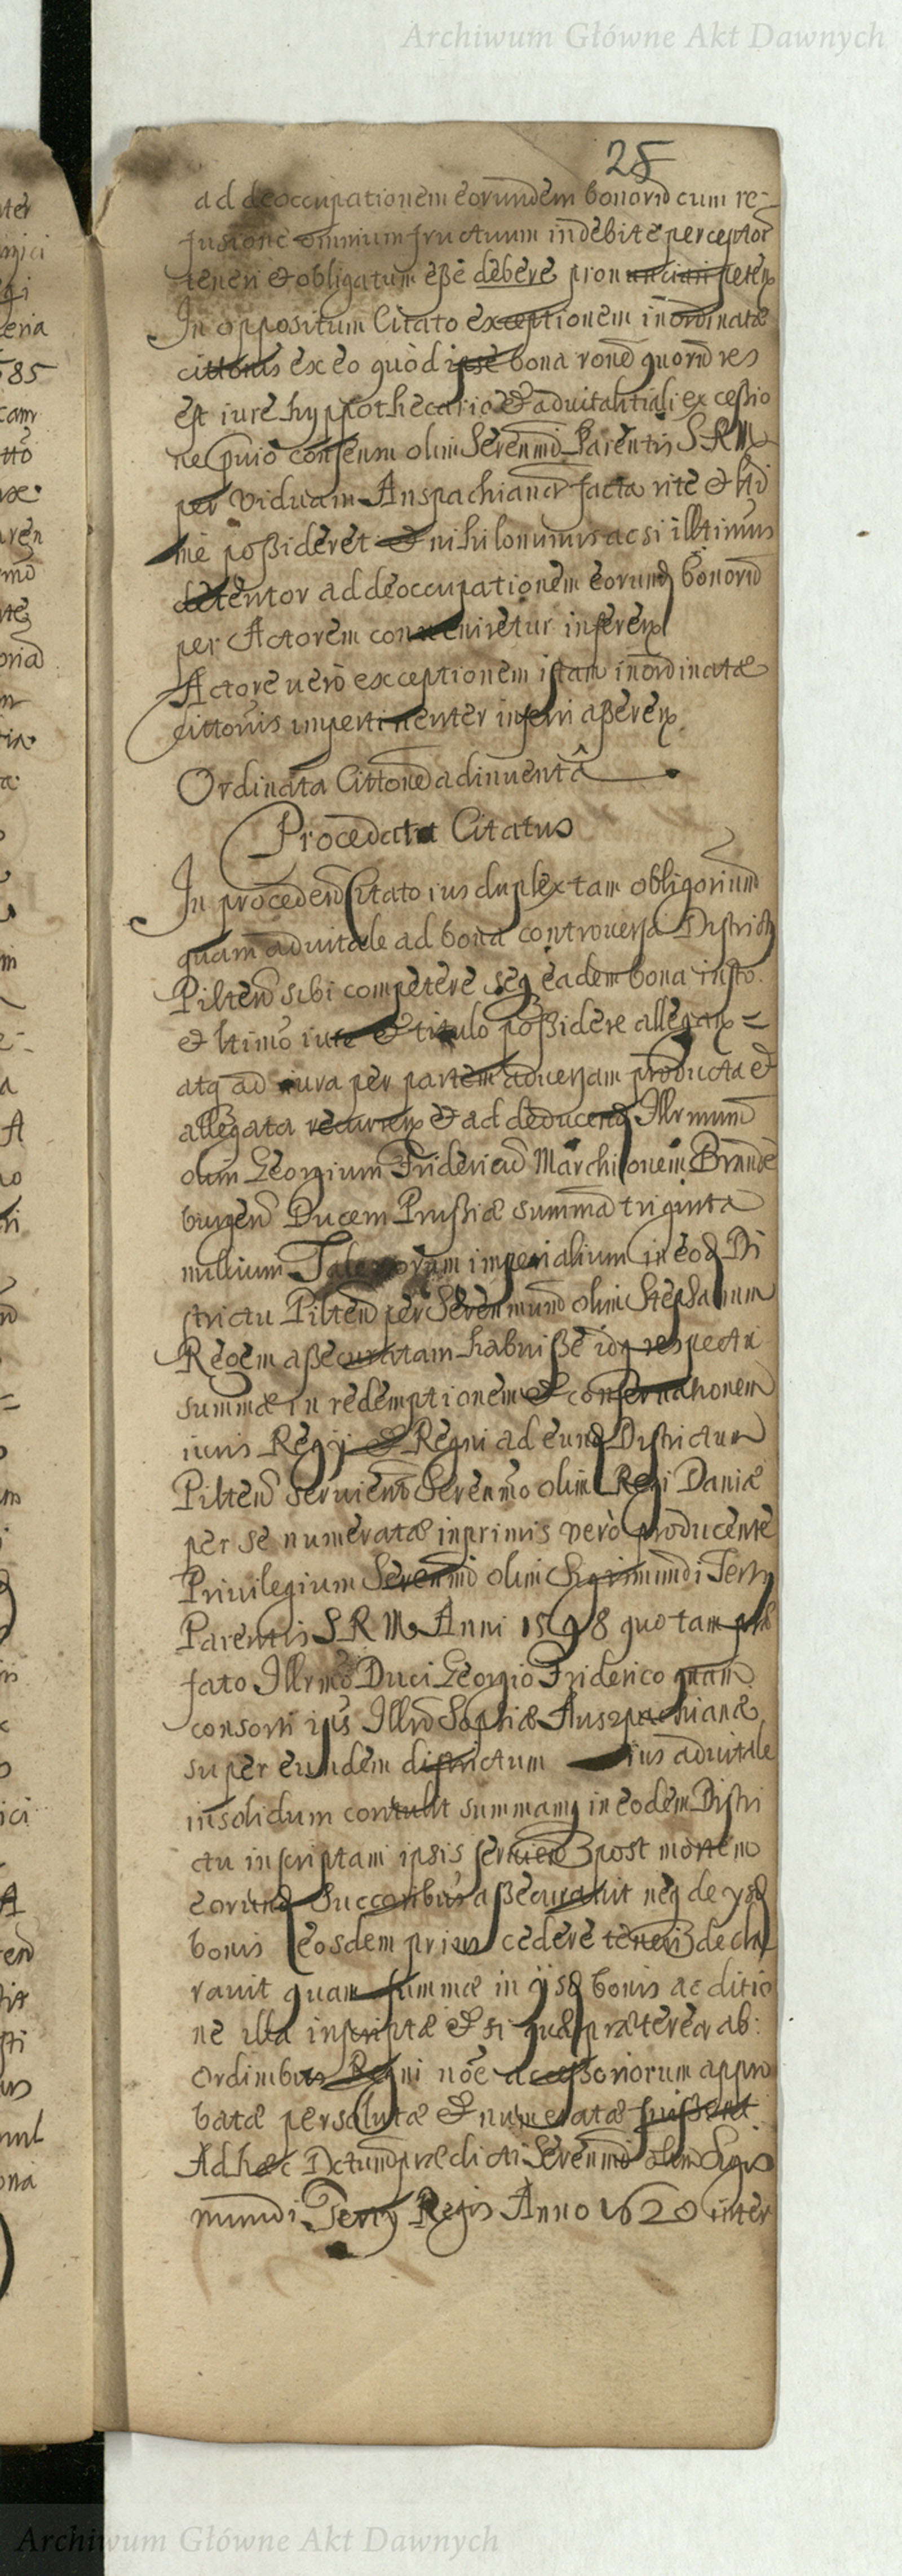 Archiwum Główne Akt Dawnych
25
ad deoccupationem eorundem bonorū cum re-
fusione omnium fructuum indebite perceptor
teneri & obligatum eße debere pronunciari peten
In oppositum Citato exceptionem inordinatæ
cittonis ex eo quòd ipse bona rōne quorū res
est iure hyppothecario & aduitalitiali ex ceßio
ne consensu olim Serenmi Parentis S R M
per Viduam Anspachianā facta rite & ltī
me poßideret & nihilominus ac si illtimus
detentor ad deoccupationem eorund bonorū
per Actorem conueniretur inferen
Actore uerò exceptionem istam inordinatæ
cittonis impertinenter inferri aßeren
Ordinata Cittone adinuentâ
Procedat Citatus
In proceden Citato ius duplex tam obligoriūm
quam aduitale ad bona controuersa Districtq
Pilten sibi competere seq eadem bona iusto
et ltimo iure & titulo poßidere allegan =
atq ad iura per partem aduersam producta &
allegata recurren & ad deducend Illrmum
olim Georgium Fridericū Marchionem Brande
burgen Ducem Prußiæ summā triginta
millium Talerorum imperialium in eod Di
strictu Pilten per Serenmum olim Stephanum
Regem aßecuratam habuiße idq respectu
summæ in redemptionem & conseruationem
iuris Regij & Regni ad eund Districtum
Pilten seruien Serenmo olim Regi Daniæ
per se numeratæ inprimis verò producente
Privilegium Serenmi olim Sigismundi Tertij
Parentis S R M Anni 1598 quo tam præ
fato Illrmo Duci Georgio Friderico quam
consorti ips Illrō Sophiæ Anspachianæ
super eundem districtum ius aduitale
insolidum contulit summamq in eodem Distri
ctu inscriptam ipsis seruien post mortem
eorund Succoribus aßecurauit neq de ysd
bonis eosdem prius cedere teneri decla
rauit quam summæ in ijsd bonis ac ditio
ne illa inscriptæ & si quæ præterea ab
Ordinibus Regni nōe acceßoriorum appro
batæ persolutæ & numeratæ fuißent
Ad hæc Dctum prædicti Serenmi olim Sigis
mundi Tertij Regis Anno 1620 inter
Archiwum Główne Akt Dawnych